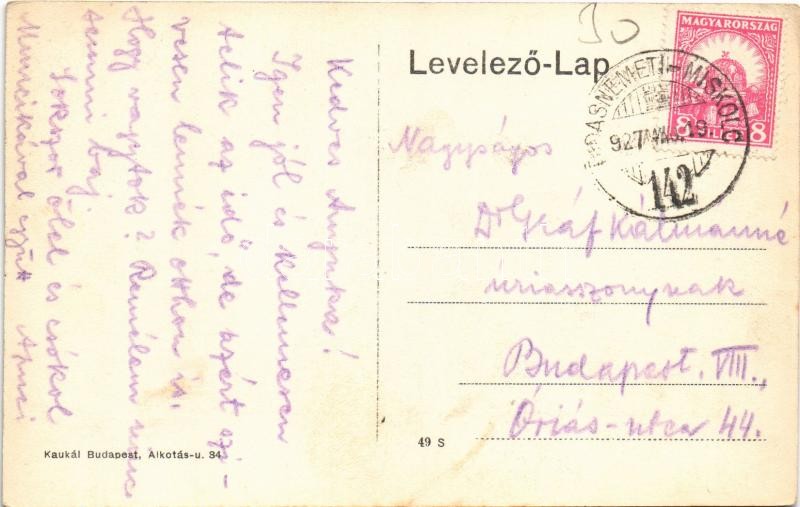 Levelező-Lap
30
MAGYARORSZÁG
8 8
HIDASNÉMETI-MISKOLC
927 VIII. 19.
142
Kedves Anyuka!
Igen jól és kellemesen
telik az idő, de azért szí-
vesen lennék otthon is.
Hogy vagytok? Remélem nincs
semmi baj.
Sokszor ölel és csókol
Muncikával együtt Apuci
Nagyságos
Dr Gráf Kálmánné
úriasszonynak
Budapest. VIII.,
Óriás-utca 44.
Kaukál Budapest, Alkotás-u. 34
49 S